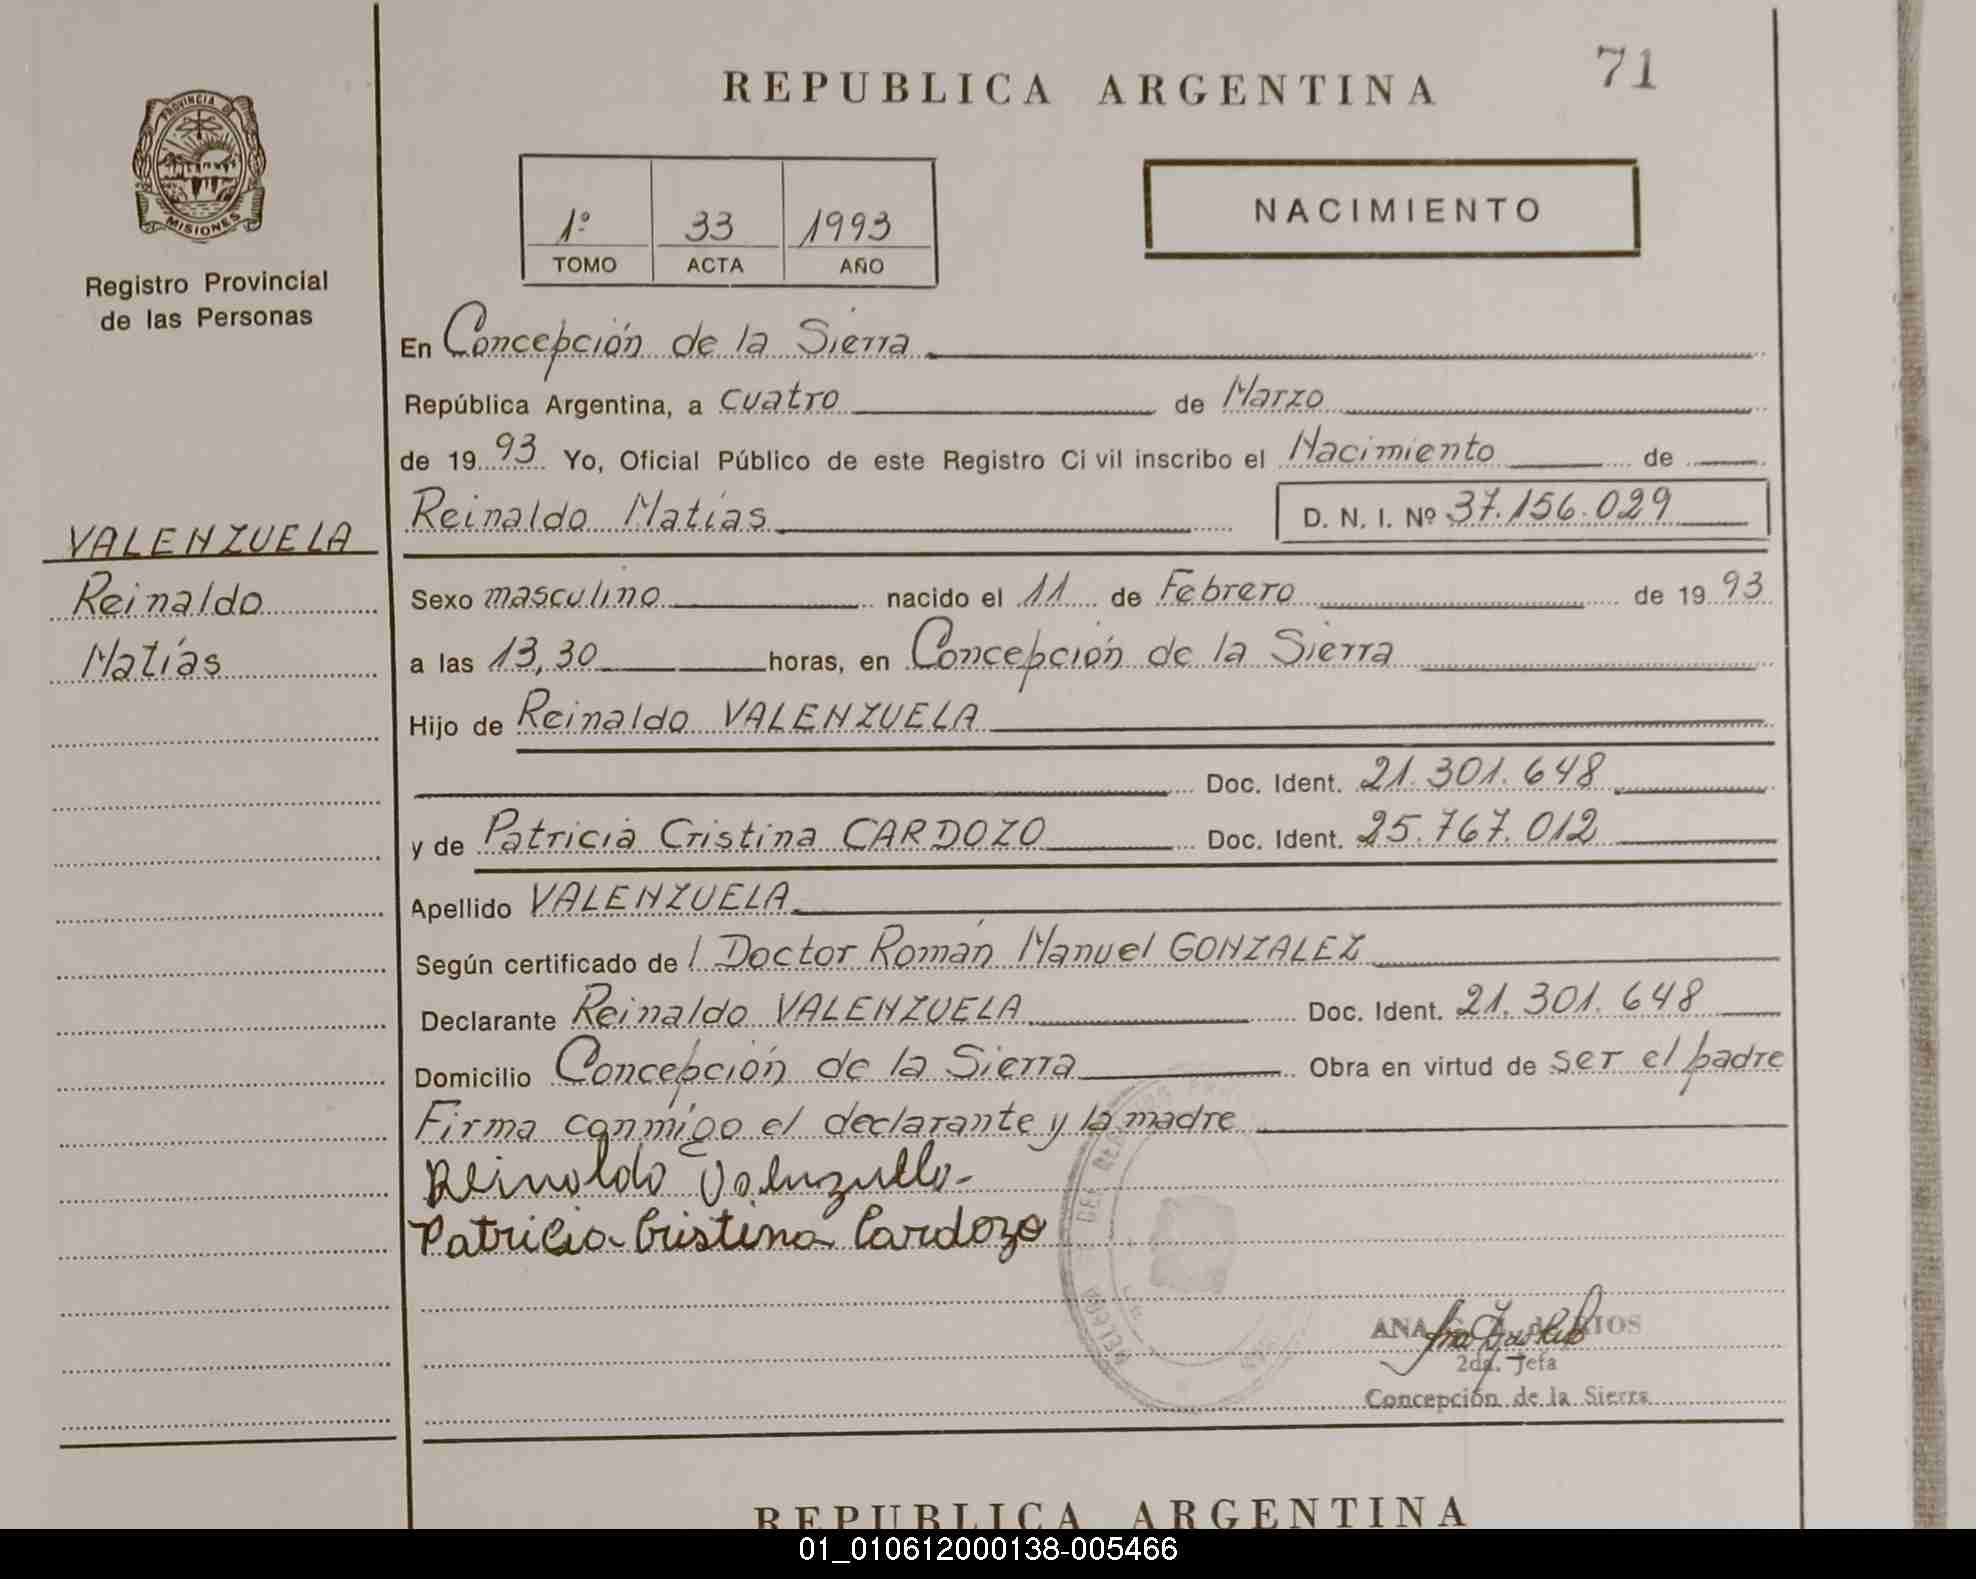 71
REPUBLICA ARGENTINA
PROVINCIA DE
MISIONES
Registro Provincial
de las Personas
1º 33 1993
TOMO ACTA AÑO
NACIMIENTO
En Concepción de la Sierra
República Argentina, a cuatro de Marzo
de 1993 Yo, Oficial Público de este Registro Civil inscribo el Nacimiento de
Reinaldo Matías D. N. I. Nº 37.156.029
VALENZUELA
Reinaldo
Matías
Sexo masculino nacido el 11 de Febrero de 1993
a las 13,30 horas, en Concepción de la Sierra
Hijo de Reinaldo VALENZUELA
Doc. Ident. 21.301.648
y de Patricia Cristina CARDOZO Doc. Ident. 25.767.012
Apellido VALENZUELA
Según certificado del Doctor Román Manuel GONZALEZ
Declarante Reinaldo VALENZUELA Doc. Ident. 21.301.648
Domicilio Concepción de la Sierra Obra en virtud de ser el padre
Firma conmigo el declarante y la madre
Reinaldo Valenzuela
Patricia Cristina Cardozo
ANA
2da. Jefa
Concepción de la Sierra
REPUBLICA ARGENTINA
01_010612000138-005466